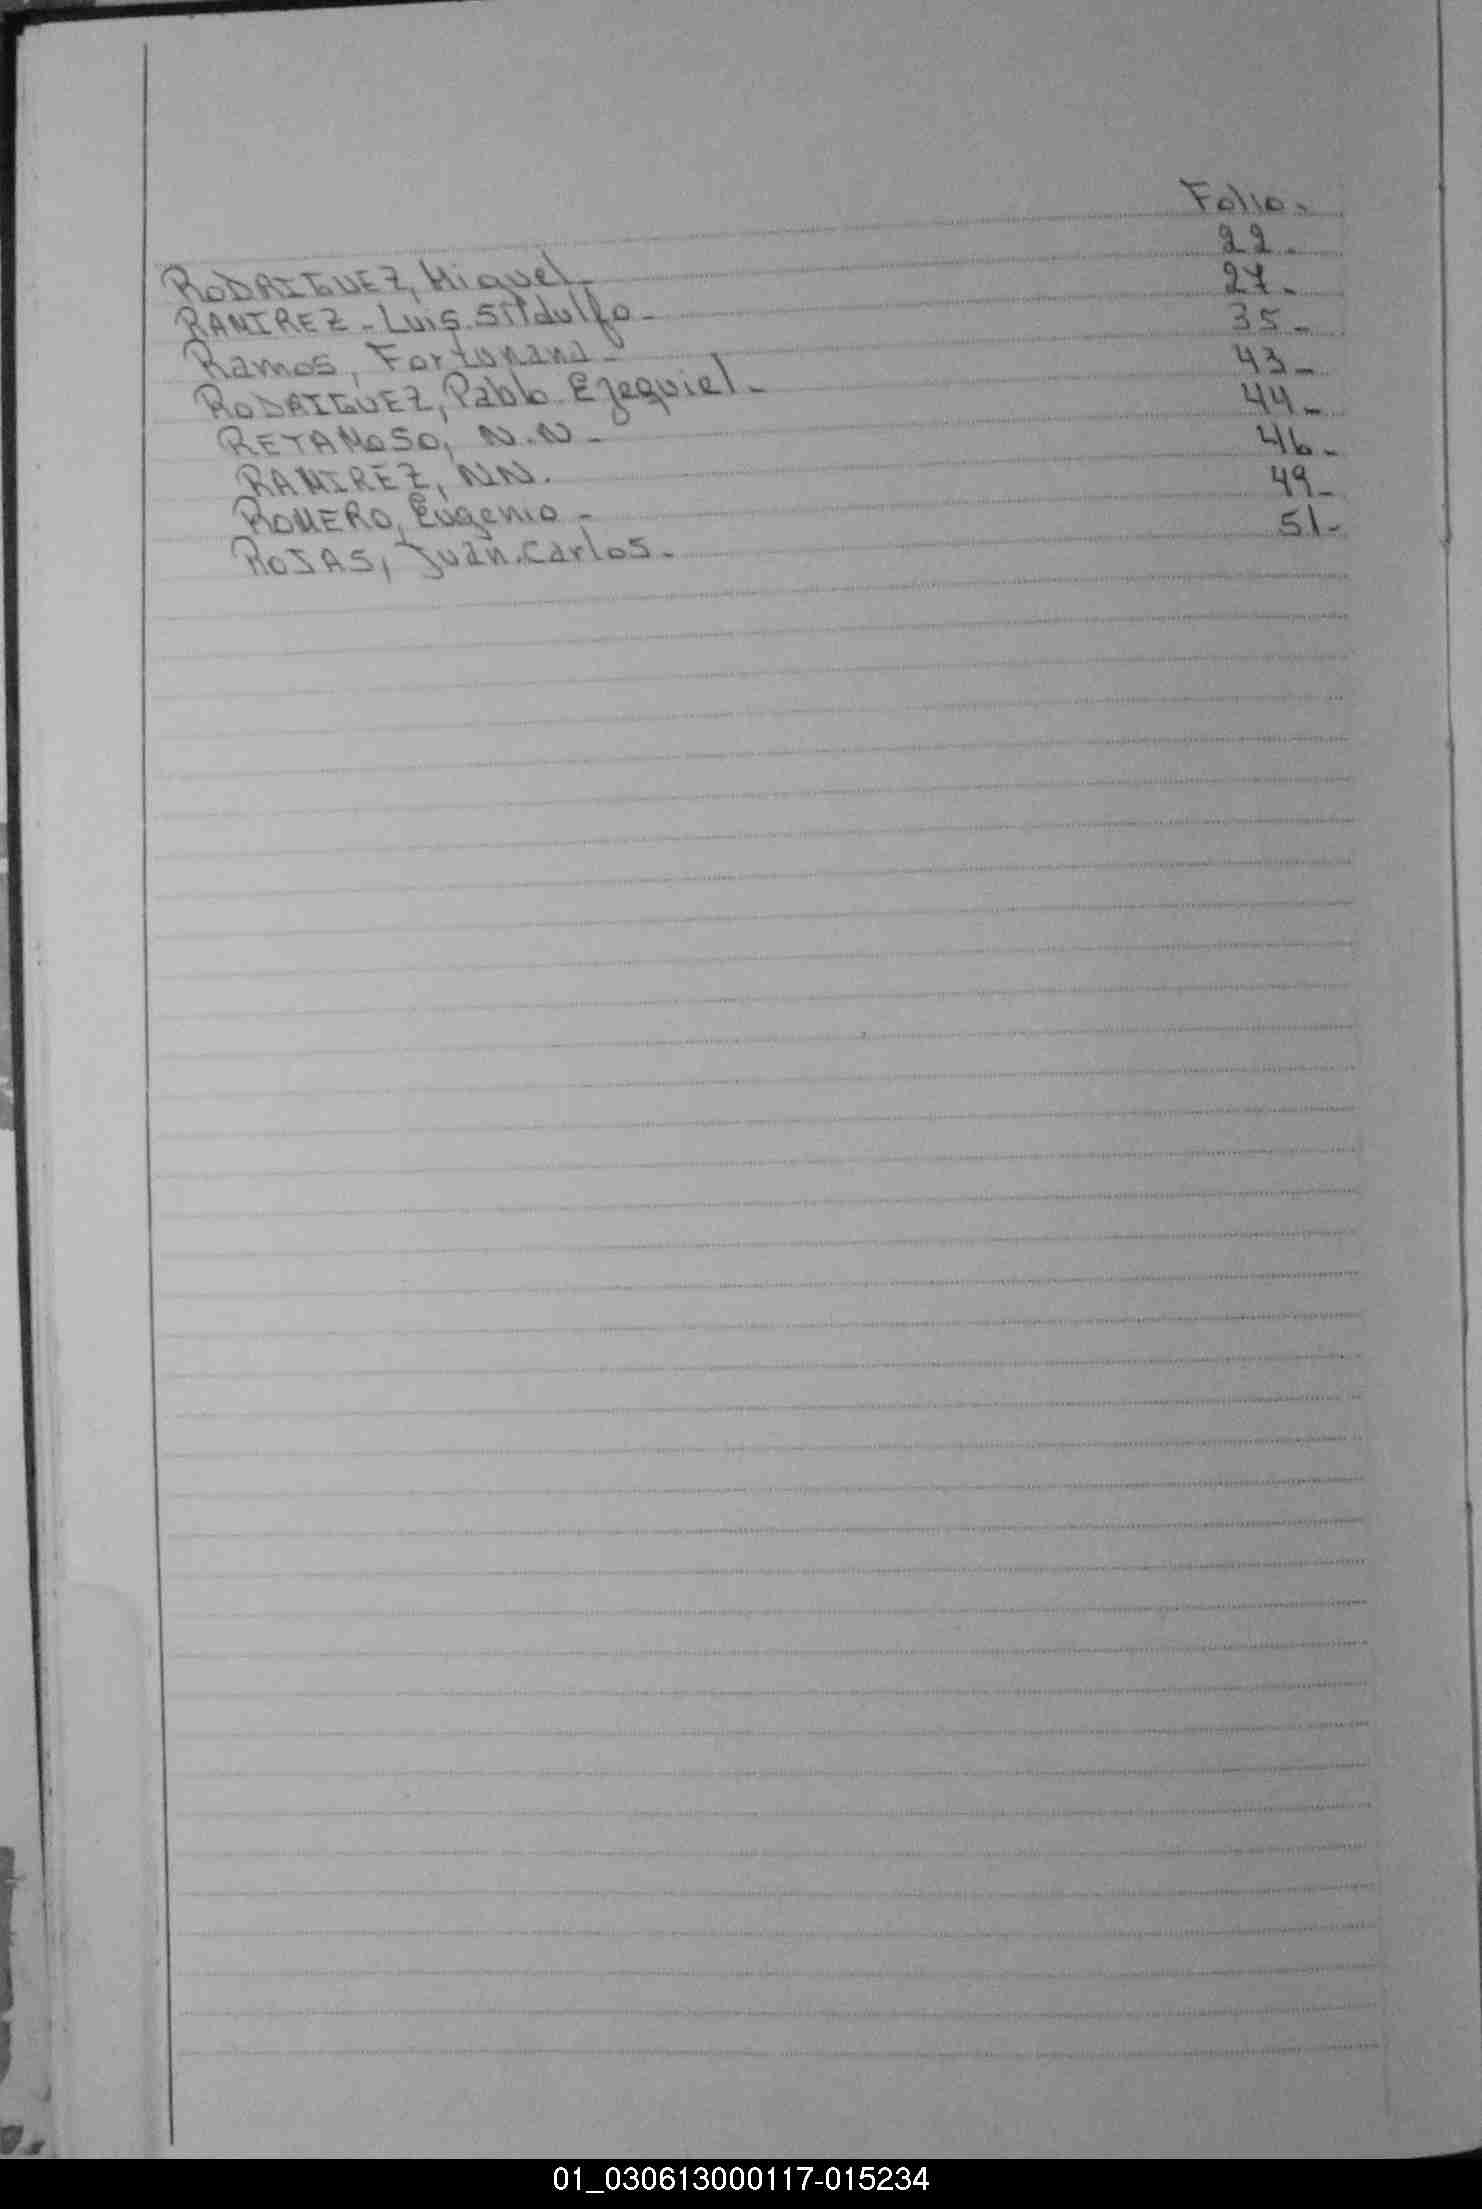 Folio-
RODRIGUEZ, Miguel- 22-
RAMIREZ-Luis. Sildulfo- 27-
Ramos, Fortunana- 35-
RODRIGUEZ, Pablo Ezequiel- 43-
RETAMOSO, N.N- 44-
RAMIREZ, NN. 46-
ROMERO, Eugenio- 49-
ROJAS, Juan.Carlos- 51-
01_030613000117-015234